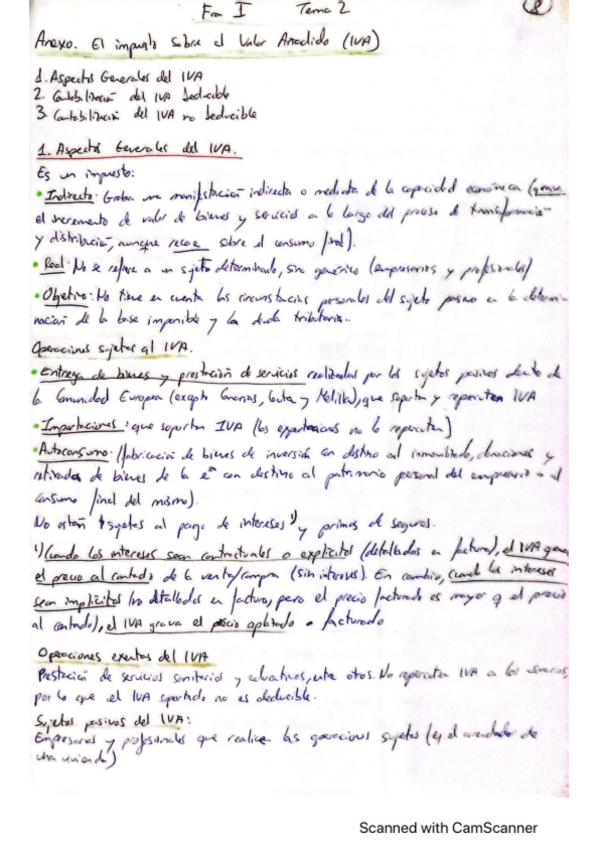 Fra I Tema 2
Anexo. El impuesto sobre el Valor Anadido (IVA)
1. Aspectos Generales del IVA
2. Contabilización del IVA deducible
3. Contabilización del IVA no deducible
1. Aspectos Generales del IVA.
Es un impuesto:
• Indirecto: Graba una manifestación indirecta o mediata de la capacidad económica (grava
el incremento de valor de bienes y servicios a lo largo del proceso de transformación
y distribución, aunque recae sobre el consumo final).
• Real: No se refiere a un sujeto determinado, sino genérico (empresarios y profesionales)
• Objetivo: No tiene en cuenta las circunstancias personales del sujeto pasivo en la determi-
nación de la base imponible y la deuda tributaria.
Operaciones sujetas al IVA.
• Entrega de bienes y prestación de servicios realizadas por los sujetos pasivos dentro de
la Comunidad Europea (excepto Canarias, Ceuta y Melilla), que soportan y repercuten IVA
• Importaciones: que soportan IVA (las exportaciones no lo repercuten)
• Autoconsumo: (fabricación de bienes de inversión con destino al inmovilizado, donaciones y
retiradas de bienes de la eª con destino al patrimonio personal del empresario o al
consumo final del mismo).
No están sujetas al pago de intereses ¹) y primas de seguros.
¹) Cuando los intereses sean contractuales o explícitos (detallados en factura), el IVA grava
el precio al contado de la venta/compra (sin intereses). En cambio, cuando los intereses
sean implícitos (no detallados en factura, pero el precio facturado es mayor q el precio
al contado), el IVA grava el precio aplazado o facturado
Operaciones exentas del IVA
Prestación de servicios sanitarios y educativos, entre otros. No repercuten IVA a los
por lo que el IVA soportado no es deducible.
Sujetos pasivos del IVA:
Empresarios y profesionales que realicen las operaciones sujetas (ej el arrendador de
una vivienda)
Scanned with CamScanner